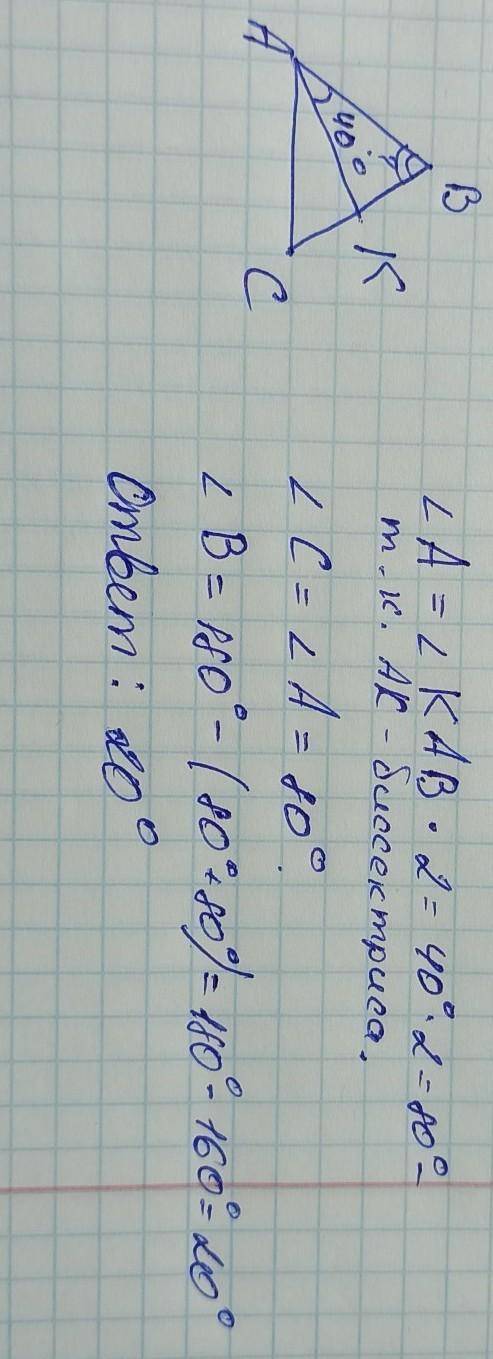 B
A
40°
K
C
∠ A = ∠ KAB · 2 = 40° · 2 = 80° –
т.к. АК – биссектриса.
∠ C = ∠ A = 80°.
∠ B = 180° – (80° + 80°) = 180° - 160° = 20°
Ответ: 20°